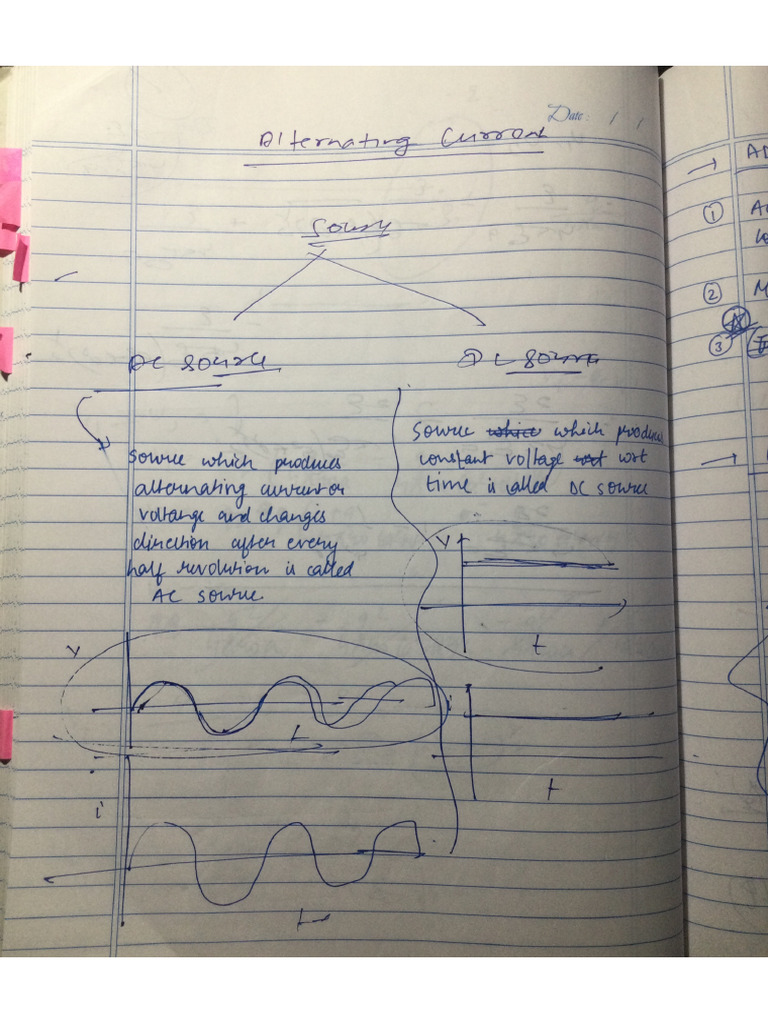 Date: / /
Alternating Current
Source
AC source
DC source
Source which produces
alternating current or
voltange and changes
direction after every
half revolution is called
AC source
Source which produces
constant voltage wrt
time is called DC source
V
t
V
t
t
i
t
→ A
① A
② M
③
→